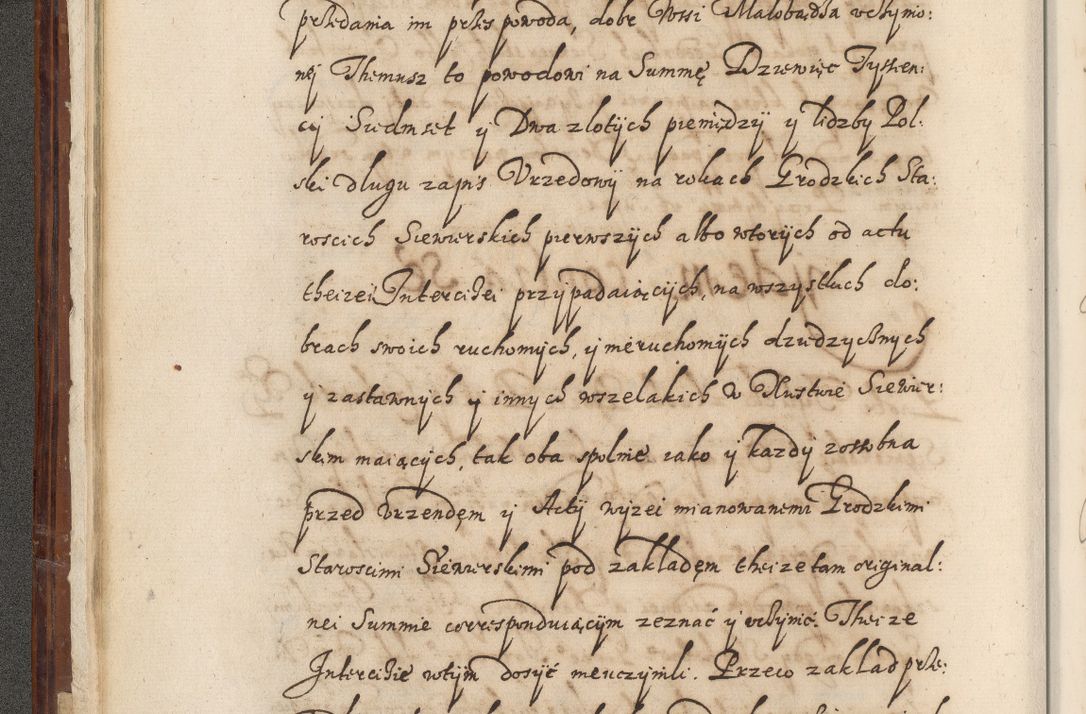 przedania im przes powoda, dobr Wsi Małobądza uchynio:
nẏ Themusz to powodowi na Summę Dziewięc Tyssięn:
cÿ Siedmset ÿ Dwa zlotÿch pieniędzÿ ÿ lidzby Pol:
ski dlugu zapis Vrzedowÿ na rokach Grodzkich Sta:
roscich Siewierskich pierwszÿch albo wtorÿch od actu
theizei Intercizei przÿpadaiącÿch, na wszystkich do:
brach swoich ruchomÿch, ÿ nieruchomÿch dziedzycznych
ÿ zastawnÿch ÿ innÿch wszelakich w Xiustwie Siewier:
skim maiącÿch, tak oba spolnie iako ÿ kazdÿ zossobna
przed Vrzendęm ÿ Actÿ wÿzei mianowanemi Grodzkimi
Staroscimi Siewierskimi pod zakladęm theize tam original:
nei Summie correspondviącÿm zeznać ÿ uchÿnić. Theize
Intercizie wtÿm dosÿć nieuczÿnili. Przeco zaklad prze: